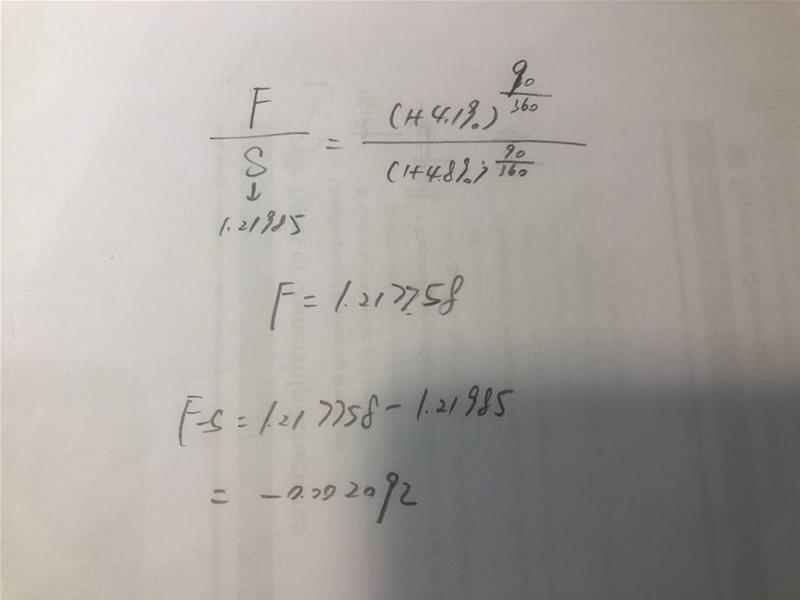 F/S = (1+4.1%)^(90/360) / (1+4.8%)^(90/360)
↓
1.21985
F = 1.217758
F-S = 1.217758 - 1.21985
= -0.002092